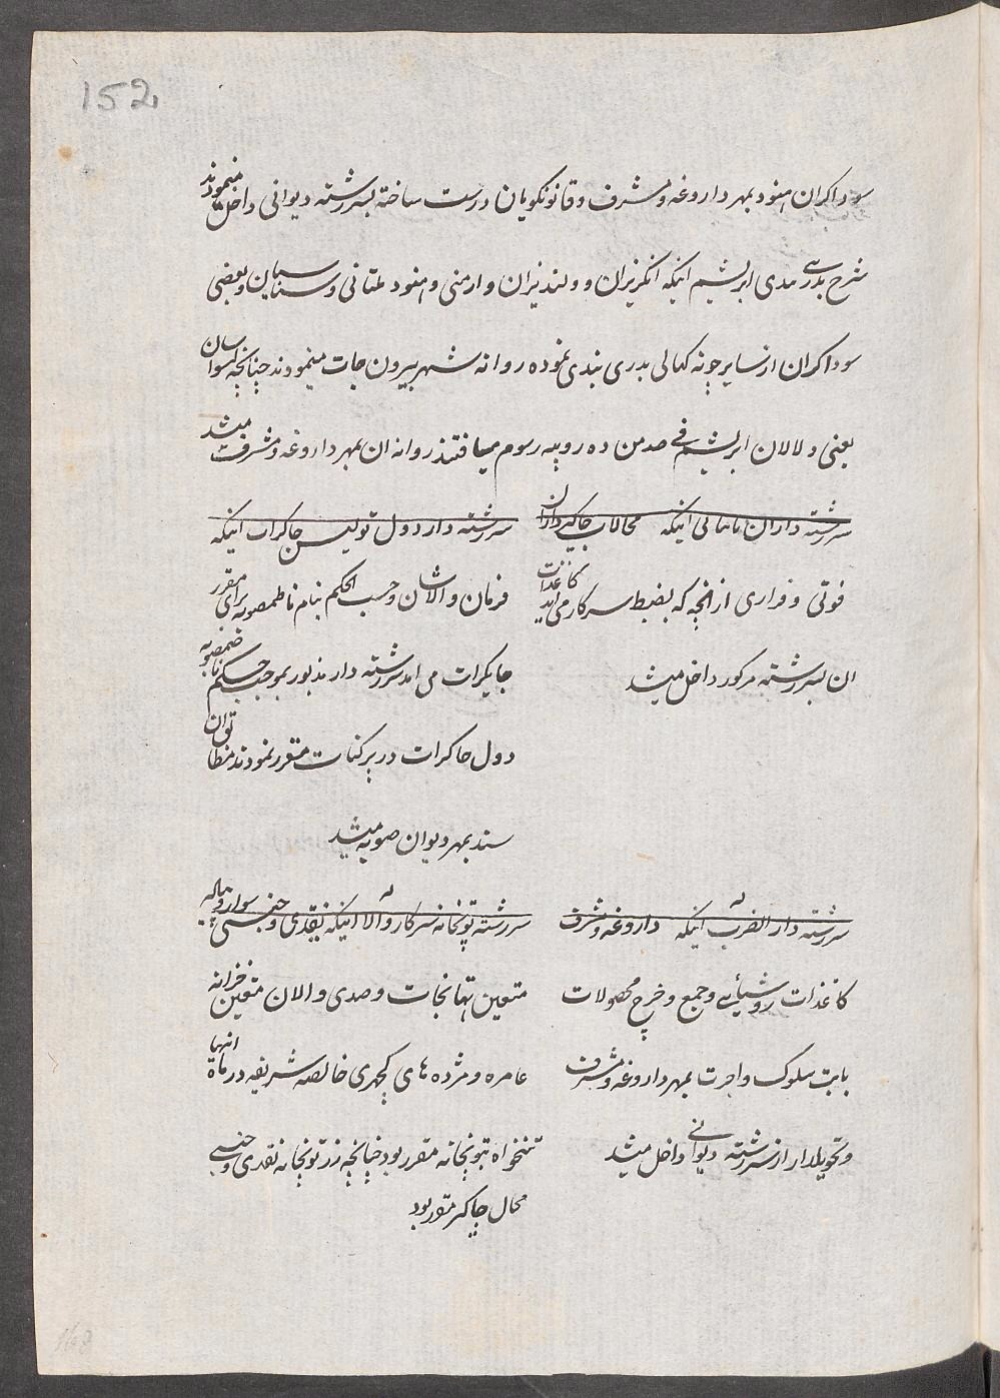 152
سوداکران هنود بمهر داروغه و مشرف و قانونکویان درست ساخته بسررشته دیوانی داخل مینمودند
شرح بدرسی مدی ابریشم اینکه انکریزان و ولندیزان و ارمنی و هنود ملتانی و سناسیان و بعضی
سوداکران از سایر چونه کهالی بدری بندی نموده روانه شهر بیرون جات مینمودند چنانچه
یعنی دلالان ابریشم فی صد من ده روپیه رسوم میافتند روانه ان بمهر داروغه و مشرف میشد
سررشته داران اینکه محالات جاکیرداران
فوتی و فراری از انچه که بضبط سرکار می اید کاغذات
ان بسررشته مرکور داخل میشد
سررشته دار دول جاکرات اینکه
فرمان والاشان و حسب الحکم بنام ناظم صوبه برای مقرر
جایکرات می امد سررشته دار مذبور بموجب حکم
دول جاکرات در پرکنات مقرر نمودند
سند بمهر دیوان صوبه میشد
سررشته دار الضرب اینکه داروغه و مشرف
کاغذات و جمع و خرج محصولات
بابت سلوک و اجرت بمهر داروغه و مشرف
و تحویلدار از سررشته دیوانی داخل میشد
سررشته توپخانه سرکار والا اینکه نقدی و جنسی سوار و پیاله
متعین تهانجات و صدی والان متعین خزانه
عامره و مژده های کچهری خالصه شریفه در ماه انها
تنخواه توپخانه مقرر بود چنانچه زر توپخانه نقدی و جنسی
محال جاکیر مقرر بود
168